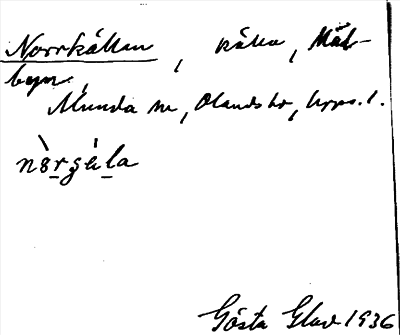 Norrkällan, källa, Mälbyn,
Munda sn, Olands hd, Upps. l.
nòrɟéla
Gösta Glad 1936